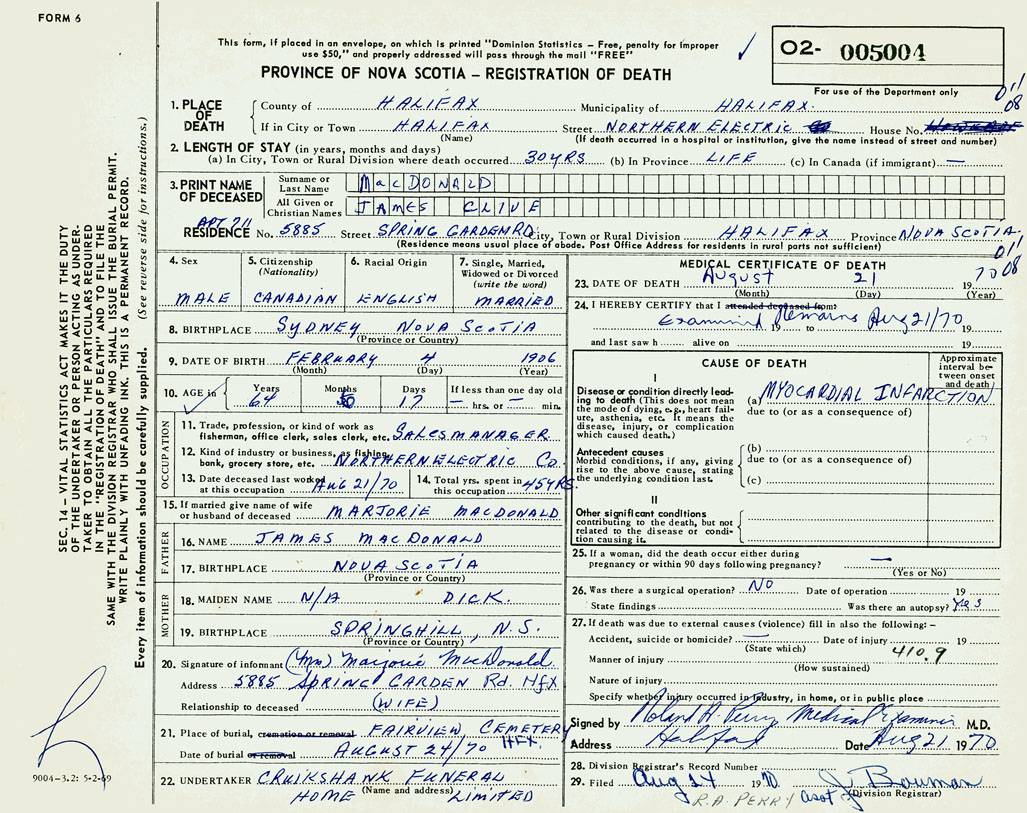 FORM 6
This form, if placed in an envelope, on which is printed "Dominion Statistics – Free, penalty for improper
use $50," and properly addressed will pass through the mail "FREE"
PROVINCE OF NOVA SCOTIA – REGISTRATION OF DEATH
02- 005004
For use of the Department only
011
08
1. PLACE OF DEATH
County of HALIFAX Municipality of HALIFAX.
If in City or Town HALIFAX Street NORTHERN ELECTRIC House No.
(Name) (If death occurred in a hospital or institution, give the name instead of street and number)
2. LENGTH OF STAY (in years, months and days)
(a) In City, Town or Rural Division where death occurred 30 YRS (b) In Province LIFE (c) In Canada (if immigrant) —
3. PRINT NAME OF DECEASED
Surname or Last Name MacDONALD
All Given or Christian Names JAMES CLIVE
APT 711
RESIDENCE No. 5885 Street SPRING GARDEN RD. City, Town or Rural Division HALIFAX Province NOVA SCOTIA
(Residence means usual place of abode. Post Office Address for residents in rural parts not sufficient)
011
08
4. Sex 5. Citizenship (Nationality) 6. Racial Origin 7. Single, Married, Widowed or Divorced (write the word)
MALE CANADIAN ENGLISH MARRIED
8. BIRTHPLACE SYDNEY NOVA SCOTIA
(Province or Country)
9. DATE OF BIRTH FEBRUARY 4 1906
(Month) (Day) (Year)
10. AGE in Years Months Days If less than one day old
64 17 — hrs. or — min.
OCCUPATION
11. Trade, profession, or kind of work as
fisherman, office clerk, sales clerk, etc. SALESMANAGER
12. Kind of industry or business, as fishing,
bank, grocery store, etc. NORTHERN ELECTRIC Co.
13. Date deceased last worked at this occupation AUG 21/70 14. Total yrs. spent in this occupation 45 YRS.
15. If married give name of wife
or husband of deceased MARJORIE MACDONALD
FATHER
16. NAME JAMES MACDONALD
17. BIRTHPLACE NOVA SCOTIA
(Province or Country)
MOTHER
18. MAIDEN NAME N/A DICK.
19. BIRTHPLACE SPRINGHILL, N.S.
(Province or Country)
20. Signature of informant (Mrs) Marjorie MacDonald
Address 5885 SPRING GARDEN Rd. Hfx
Relationship to deceased (WIFE)
21. Place of burial, cremation or removal FAIRVIEW CEMETERY
HFX.
Date of burial or removal AUGUST 24/70
22. UNDERTAKER CRUIKSHANK FUNERAL
(Name and address)
HOME LIMITED
MEDICAL CERTIFICATE OF DEATH
23. DATE OF DEATH August 21 1970
(Month) (Day) (Year)
24. I HEREBY CERTIFY that I attended deceased from:
Examined Remains 19 to Aug 21/70 19
and last saw h alive on 19
CAUSE OF DEATH
Approximate interval between onset and death
I
Disease or condition directly leading to death (This does not mean the mode of dying, e.g., heart failure, asthenia, etc. It means the disease, injury, or complication which caused death.)
(a) MYOCARDIAL INFARCTION
due to (or as a consequence of)
Antecedent causes
Morbid conditions, if any, giving rise to the above cause, stating the underlying condition last.
(b)
due to (or as a consequence of)
(c)
II
Other significant conditions
contributing to the death, but not related to the disease or condition causing it.
25. If a woman, did the death occur either during
pregnancy or within 90 days following pregnancy? —
(Yes or No)
26. Was there a surgical operation? NO Date of operation 19
State findings Was there an autopsy? YES
27. If death was due to external causes (violence) fill in also the following: –
Accident, suicide or homicide? — Date of injury 19
(State which)
410.9
Manner of injury
(How sustained)
Nature of injury
Specify whether injury occurred in industry, in home, or in public place
Signed by Roland A. Perry Medical Examiner M.D.
Address Halifax Date Aug 21 1970
28. Division Registrar's Record Number
29. Filed Aug 24 1970 J. Bowman
(Division Registrar)
R.A. PERRY asst
SEC. 14 – VITAL STATISTICS ACT MAKES IT THE DUTY
OF THE UNDERTAKER OR PERSON ACTING AS UNDER-
TAKER TO OBTAIN ALL THE PARTICULARS REQUIRED
IN THE "REGISTRATION OF DEATH" AND TO FILE THE
SAME WITH THE DIVISION REGISTRAR WHO SHALL ISSUE THE BURIAL PERMIT.
WRITE PLAINLY WITH UNFADING INK. THIS IS A PERMANENT RECORD.
Every item of information should be carefully supplied. (See reverse side for instructions.)
9004-3.2: 5-2-69